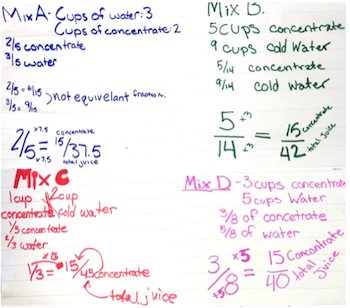 Mix A- Cups of water:3
Cups of concentrate:2
2/5 concentrate
3/5 water
2/5 = 6/15
3/5 = 9/15
> not equivelant fraction.
2/5 x7.5 x7.5 = 15/37.5
concentrate
total juice
Mix B.
5 cups concentrate
9 cups cold water
5/14 concentrate
9/14 cold water
5/14 x3 x3 = 15/42
concentrate
total juice
Mix C
1 cup 2 cup
concentrate cold water
1/3 concentrate
2/3 water
x15
1/3 = 15/45 concentrate
total juice
Mix D - 3 cups concentrate
5 cups water
3/8 of concetrate
5/8 of water
3/8 x5 x5 = 15/40
concentrate
total juice